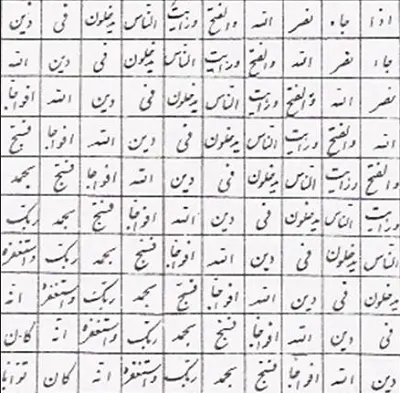 اذا جاء نصر الله والفتح ورایت الناس یدخلون فی دین
جاء نصر الله والفتح ورایت الناس یدخلون فی دین الله
نصر الله والفتح ورایت الناس یدخلون فی دین الله افواجا
الله والفتح ورایت الناس یدخلون فی دین الله افواجا فسبح
والفتح ورایت الناس یدخلون فی دین الله افواجا فسبح بحمد
ورایت الناس یدخلون فی دین الله افواجا فسبح بحمد ربک
الناس یدخلون فی دین الله افواجا فسبح بحمد ربک واستغفره
یدخلون فی دین الله افواجا فسبح بحمد ربک واستغفره انه
فی دین الله افواجا فسبح بحمد ربک واستغفره انه کان
دین الله افواجا فسبح بحمد ربک واستغفره انه کان توابا